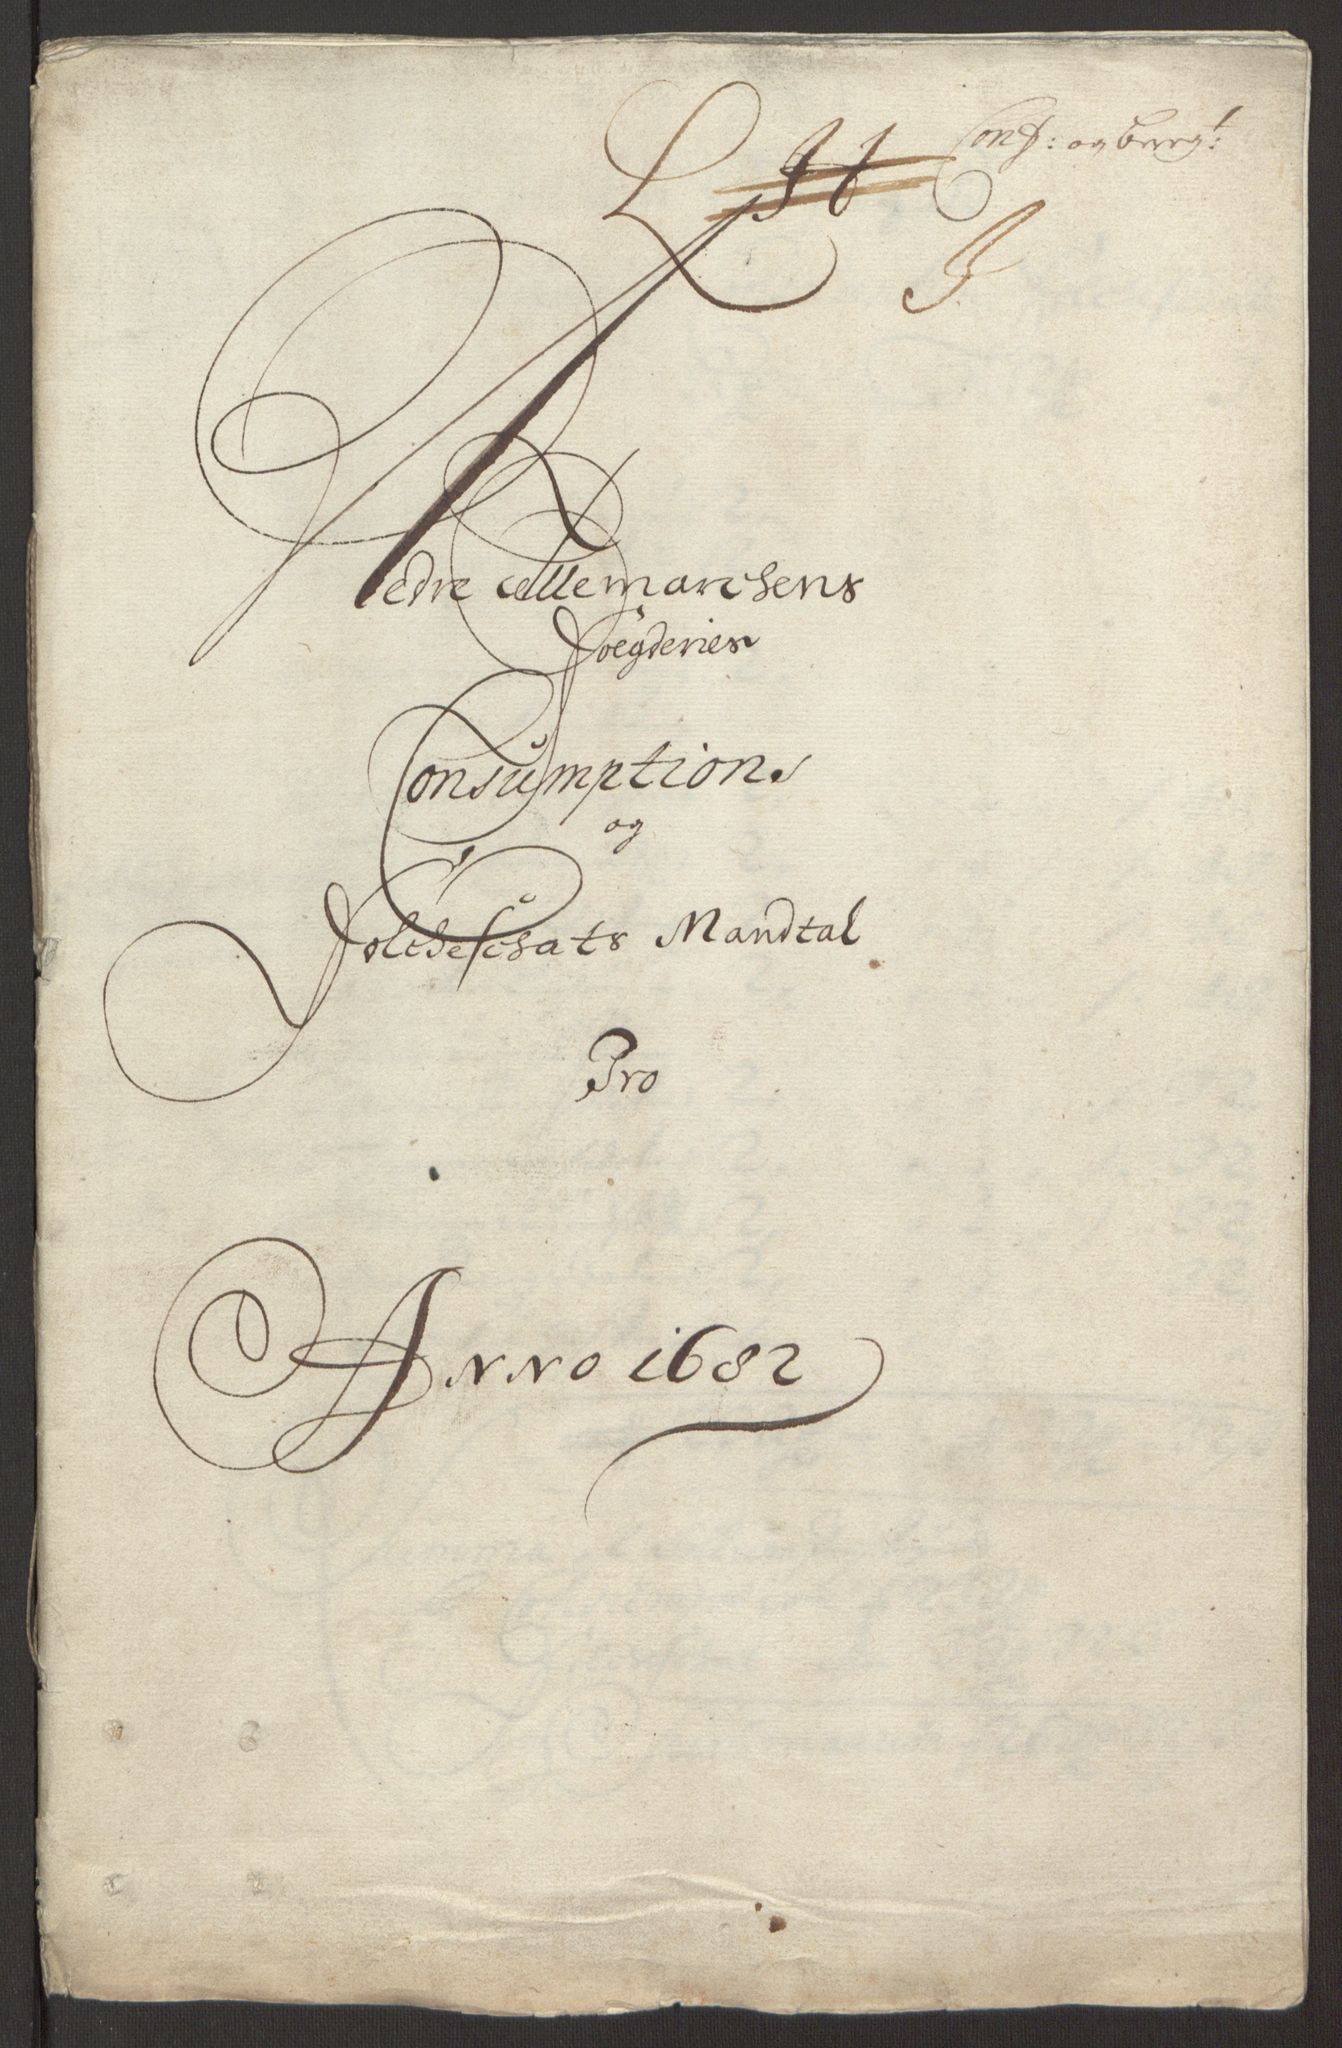 Lit
Conf: og berg:
Nedre Tellemarchens
Foegderies
Consumptions
og
Folcheschats Mandtal
Pro
Anno 1682